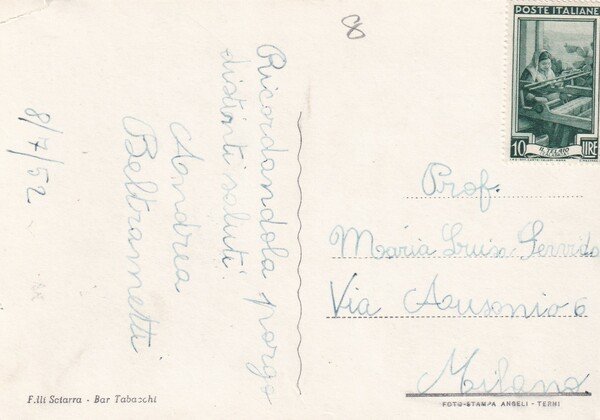 8
Ricordandola porgo
distinti saluti.
Andrea
Beltrametti
8/7/52
F.lli Sotarra - Bar Tabacchi
POSTE ITALIANE
IL TELAIO
10 LIRE
Prof.
Maria Luisa Servida
Via Ausonio 6
Milano
FOTO-STAMPA ANGELI - TERNI